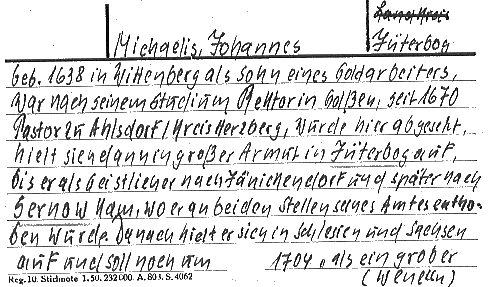 Land Kreis
Michaelis, Johannes Jüterbog
Geb. 1638 in Wittenberg als Sohn eines Goldarbeiters,
war nach seinem Studium Rektor in Golßen, seit 1670
Pastor zu Ahlsdorf/Kreis Herzberg, wurde hier abgesetzt,
hielt sich dann in großer Armut in Jüterbog auf,
bis er als Geistlicher nach Jänichendorf und später nach
Sernow kam, wo er an beiden Stellen seines Amtes entho-
ben wurde. Danach hielt er sich in Schlesien und Sachsen
auf und soll noch um 1704 „als ein grober
Reg. 10. Stichnote 1. 50. 232 000. A. 803. S. 4062 (wenden)